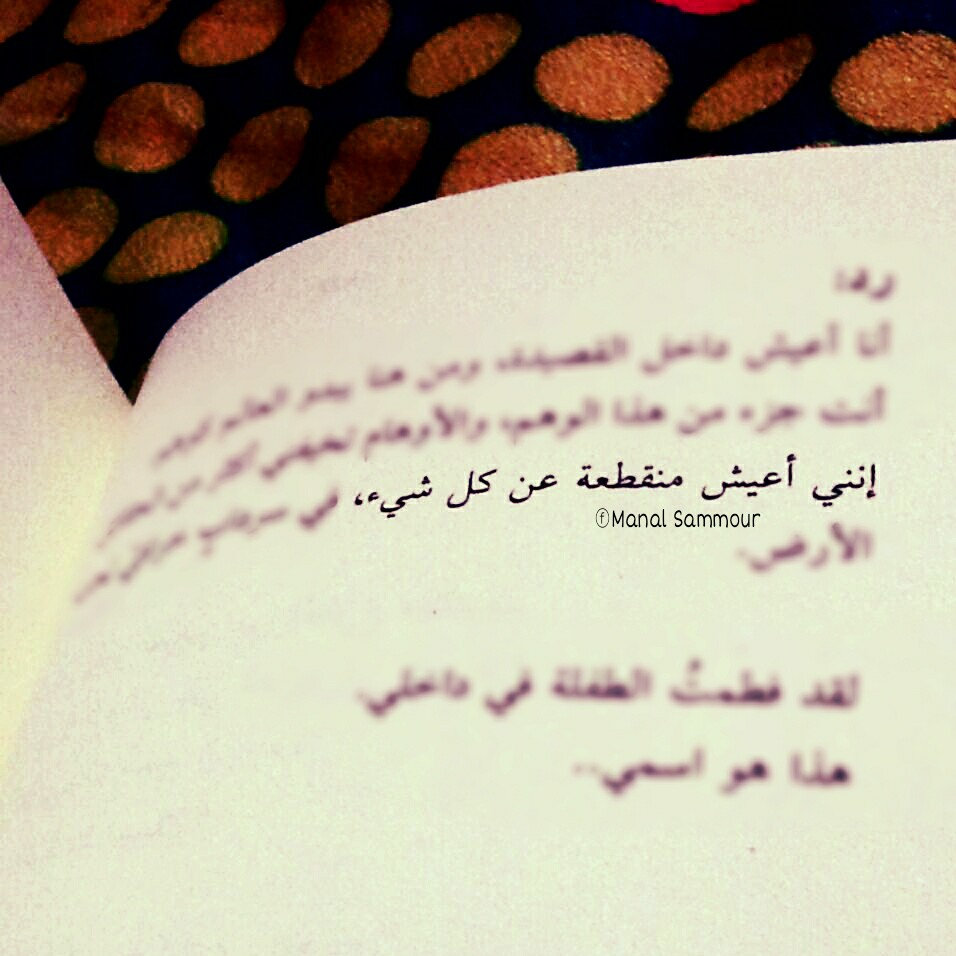 رد:
أنا أعيش داخل القصيدة، ومن هنا يبدو العالم
أنت جزء من هذا الوهم، والأوهام تخيفني أكثر من
إنني أعيش منقطعة عن كل شيء، في سردابٍ
ⓕManal Sammour
الأرض.
لقد فطمتُ الطفلة في داخلي.
هذا هو اسمي..